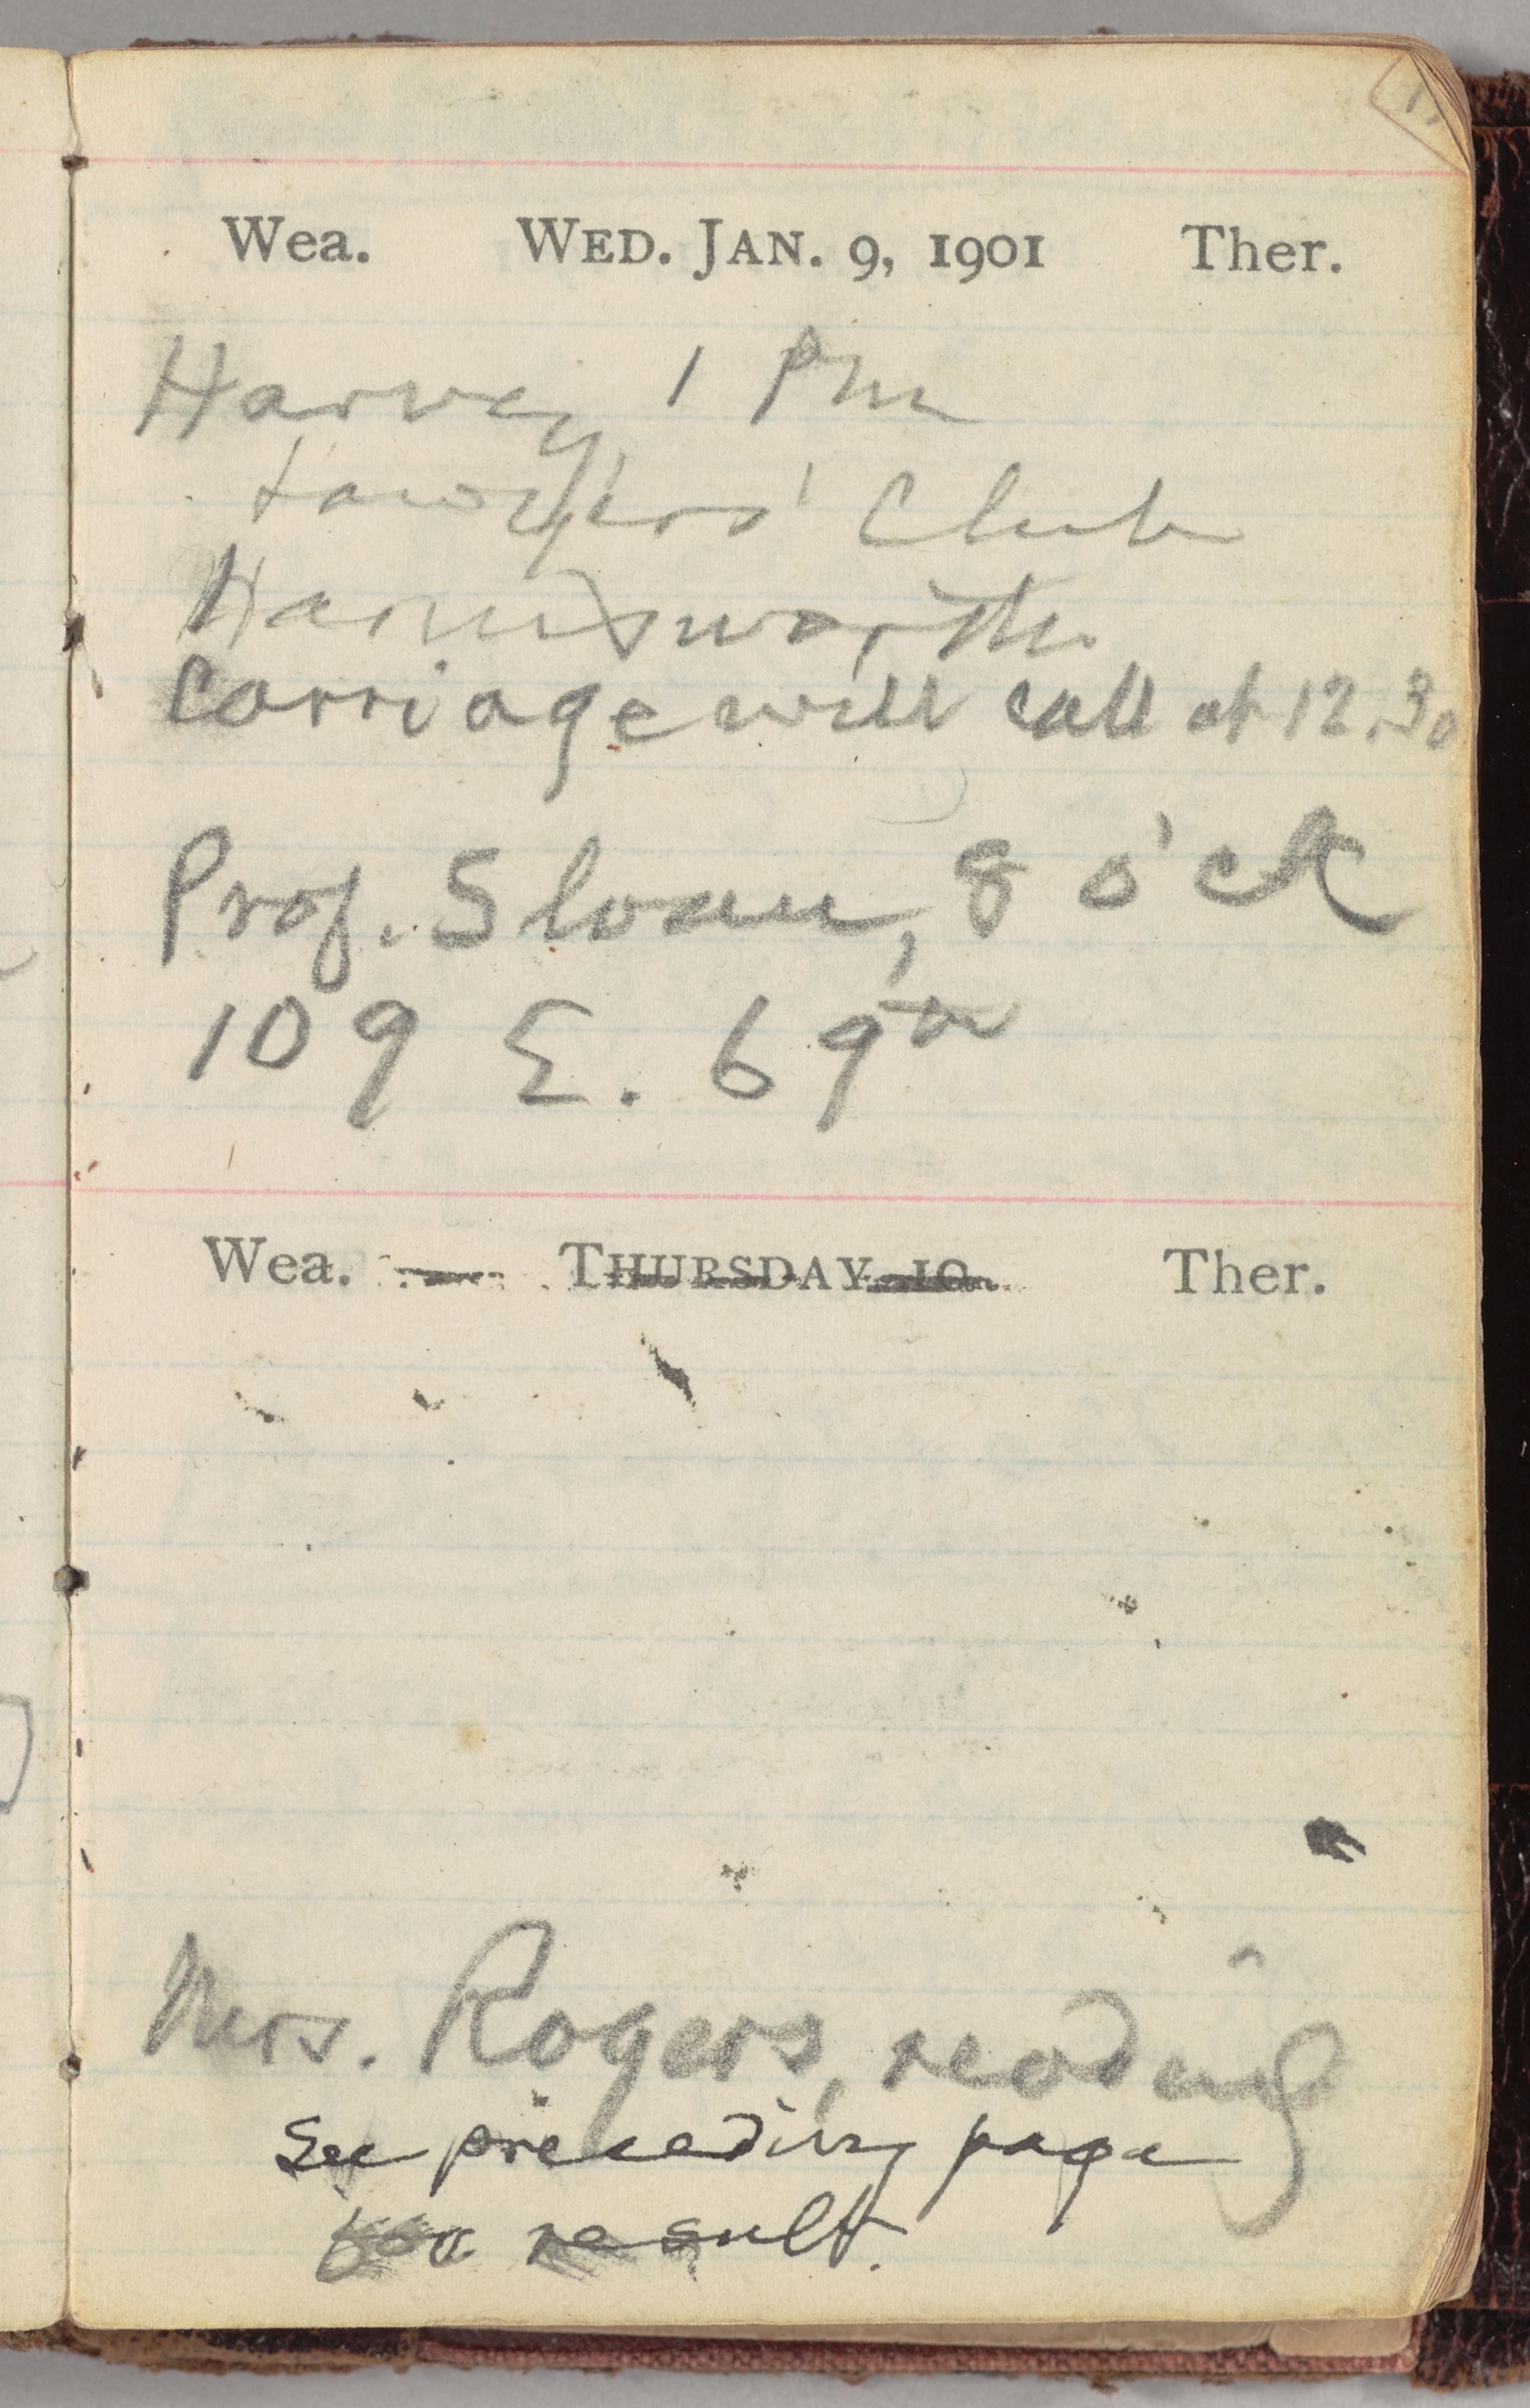 Wea. WED. JAN. 9, 1901 Ther.
Harvey 1 PM
Lawyers' Club
Harmsworth
Carriage will call at 12.30
Prof. Sloan, 8 o'ck
109 E. 69th
Wea. THURSDAY 10 Ther.
Mrs. Rogers, reading
See preceding page
for result.